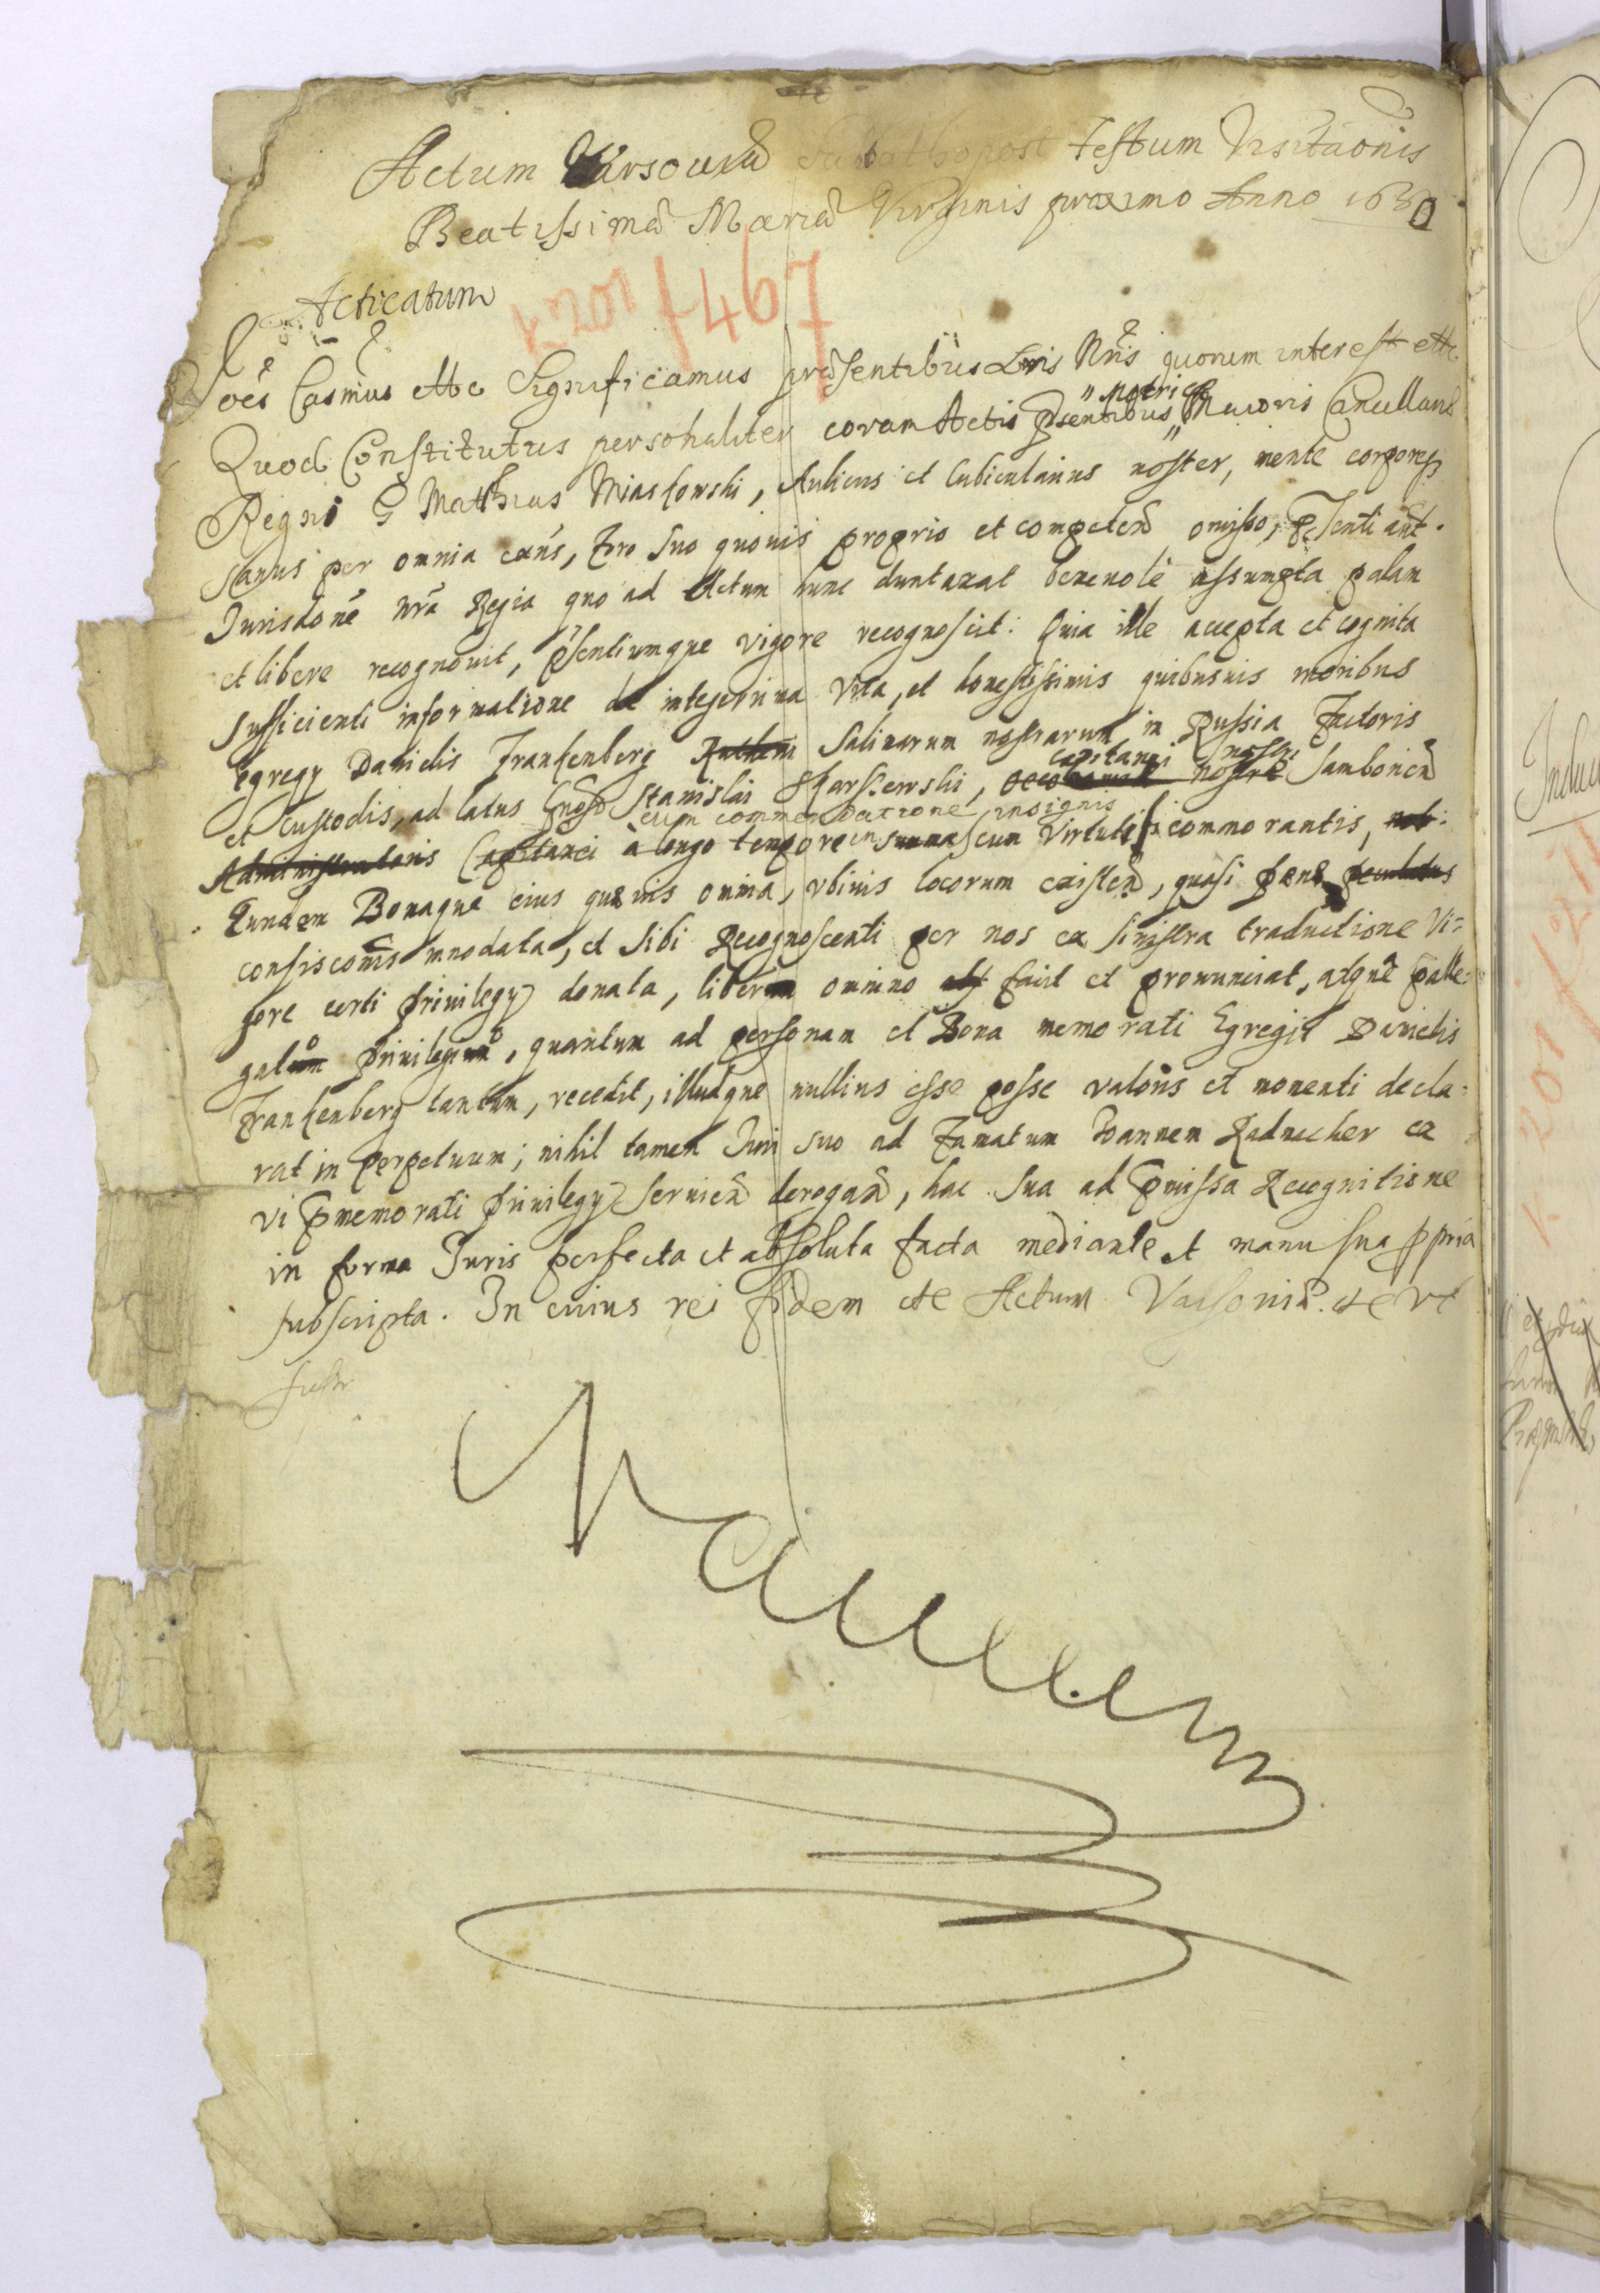 Actum Varsouiæ Sabbatho post Festum Visitaonis
Beatissimæ Mariæ Virginis proximo Anno 1650
K 201 f 467
Acticatum
Joes Casmus etc Significamus præsentibus Lris Nris quorum interest etc.
Quod Constitutus personaliter coram Actis psentibus Metrices Maioris Cancellariæ
Regni G Mathias Miaskowski, Aulicus et Cubicularius noster, mente corporeqz
sanus per omnia exns, foro suo quouis proprio et competen omisso, psenti aut.
Jurisdone nra Regia quo ad Actum hunc duntaxat beneuole assumpta palam
et libere recognouit, psentiumque vigore recognoscit: Quia ille accepta et cognita
sufficienti informatione de integerrima vita, et honestissimis quibusuis moribus
Egregy Danielis Frankenberg Salinarum nostrarum in Russia Factoris
et Custodis, ad latus Gnosi Stanislai Skarszewski, capitanei nostri Samborien
Administratoris Capitanei à longo tempore in summa cum commendatione insignis virtutis commorantis,
Eundem Bonaque eius quæuis omnia, vbiuis locorum existen, quasi pæne
confiscaonis innodata, et sibi Recognoscenti per nos ex sinistra traductione vi=
gore certi Priuilegy donata, liberum omnino facit et pronunciat, atque palle=
gato Priuilegio, quantum ad personam et Bona memorati Egregij Danielis
Frankenberg tantum, recedit, illudque nullius esse posse valoris et momenti decla=
rat in perpetuum; nihil tamen Juri suo ad Famatum Joannem Radnecher ex
vi pmemorati Priuilegy seruien derogan, hac sua ad pmissa Recognitione
in forma Juris perfecta et absoluta facta mediante et manu sua ppria
subscripta. In cuius rei fidem etc Actum Varsouiæ. etc vt
supr